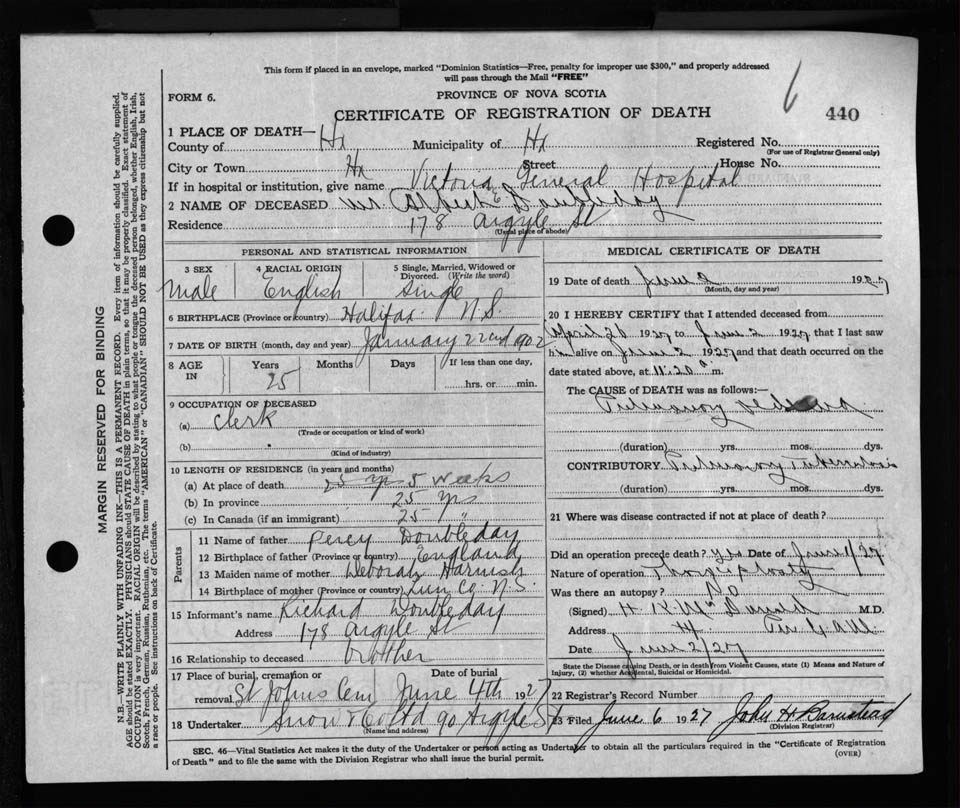 This form if placed in an envelope, marked "Dominion Statistics—Free, penalty for improper use $300," and properly addressed
will pass through the Mail "FREE"
6
FORM 6.
PROVINCE OF NOVA SCOTIA
CERTIFICATE OF REGISTRATION OF DEATH
440
1 PLACE OF DEATH—
County of Hx Municipality of Hx Registered No.
(For use of Registrar General only)
City or Town Hx Street House No.
If in hospital or institution, give name Victoria General Hospital
2 NAME OF DECEASED Mr Albert E Doubleday
Residence 178 Argyle St
(Usual place of abode)
PERSONAL AND STATISTICAL INFORMATION
3 SEX 4 RACIAL ORIGIN 5 Single, Married, Widowed or Divorced. (Write the word)
Male English Single
6 BIRTHPLACE (Province or country) Halifax N.S.
7 DATE OF BIRTH (month, day and year) January 22nd 1902
8 AGE IN Years Months Days If less than one day,
25 hrs. or min.
9 OCCUPATION OF DECEASED
(a) Clerk
(Trade or occupation or kind of work)
(b)
(Kind of industry)
10 LENGTH OF RESIDENCE (in years and months)
(a) At place of death 25 yrs 5 weeks
(b) In province 25 yrs
(c) In Canada (if an immigrant) 25 "
Parents
11 Name of father Percy Doubleday
12 Birthplace of father (Province or country) England
13 Maiden name of mother Deborah Harnish
14 Birthplace of mother (Province or country) Lun Co. N.S.
15 Informant's name Richard Doubleday
Address 178 Argyle St
16 Relationship to deceased brother
17 Place of burial, cremation or removal Date of burial
St Johns Cem June 4th 1927
18 Undertaker Snow & Co Ltd 90 Argyle St
(Name and address)
MEDICAL CERTIFICATE OF DEATH
19 Date of death June 2 1927
(Month, day and year)
20 I HEREBY CERTIFY that I attended deceased from
April 28 1927 to June 2 1927 that I last saw
him alive on June 2 1927 and that death occurred on the
date stated above, at 11.20 a. m.
The CAUSE of DEATH was as follows:—
Pulmonary
(duration) yrs. mos. dys.
CONTRIBUTORY Pulmonary Tuberculosis
(duration) yrs. mos. dys.
21 Where was disease contracted if not at place of death?
Did an operation precede death? Yes Date of June 1/27
Nature of operation Thoracoplasty
Was there an autopsy? No
(Signed) H. K. McDonald M.D.
Address Hx
Date June 2/27
State the Disease causing Death, or in death from Violent Causes, state (1) Means and Nature of Injury, (2) whether Accidental, Suicidal or Homicidal.
22 Registrar's Record Number
23 Filed June 6 1927 John H Barnstead
(Division Registrar)
SEC. 46—Vital Statistics Act makes it the duty of the Undertaker or person acting as Undertaker to obtain all the particulars required in the "Certificate of Registration
of Death" and to file the same with the Division Registrar who shall issue the burial permit.
(OVER)
MARGIN RESERVED FOR BINDING
N.B.—WRITE PLAINLY WITH UNFADING INK—THIS IS A PERMANENT RECORD. Every item of information should be carefully supplied.
AGE should be stated EXACTLY. PHYSICIANS should STATE CAUSE OF DEATH in plain terms, so that it may be properly classified. Exact statement of
OCCUPATION is very important. RACIAL ORIGIN will be described by stating to what people or tongue the deceased person belonged, whether English, Irish,
Scotch, French, German, Russian, Ruthenian, etc. The terms "AMERICAN" or "CANADIAN" SHOULD NOT BE USED as they express citizenship but not
a race or people. See instructions on back of Certificate.